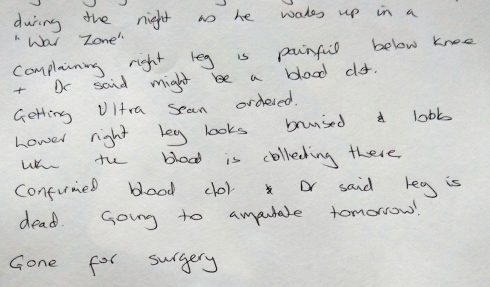 during the night as he wakes up in a
"War Zone".
Complaining right leg is painful below knee
+ Dr said might be a blood clot.
Getting Ultra Scan ordered.
Lower right leg looks bruised & looks
like the blood is collecting there
Confirmed blood clot & Dr said leg is
dead. Going to amputate tomorrow!
Gone for surgery